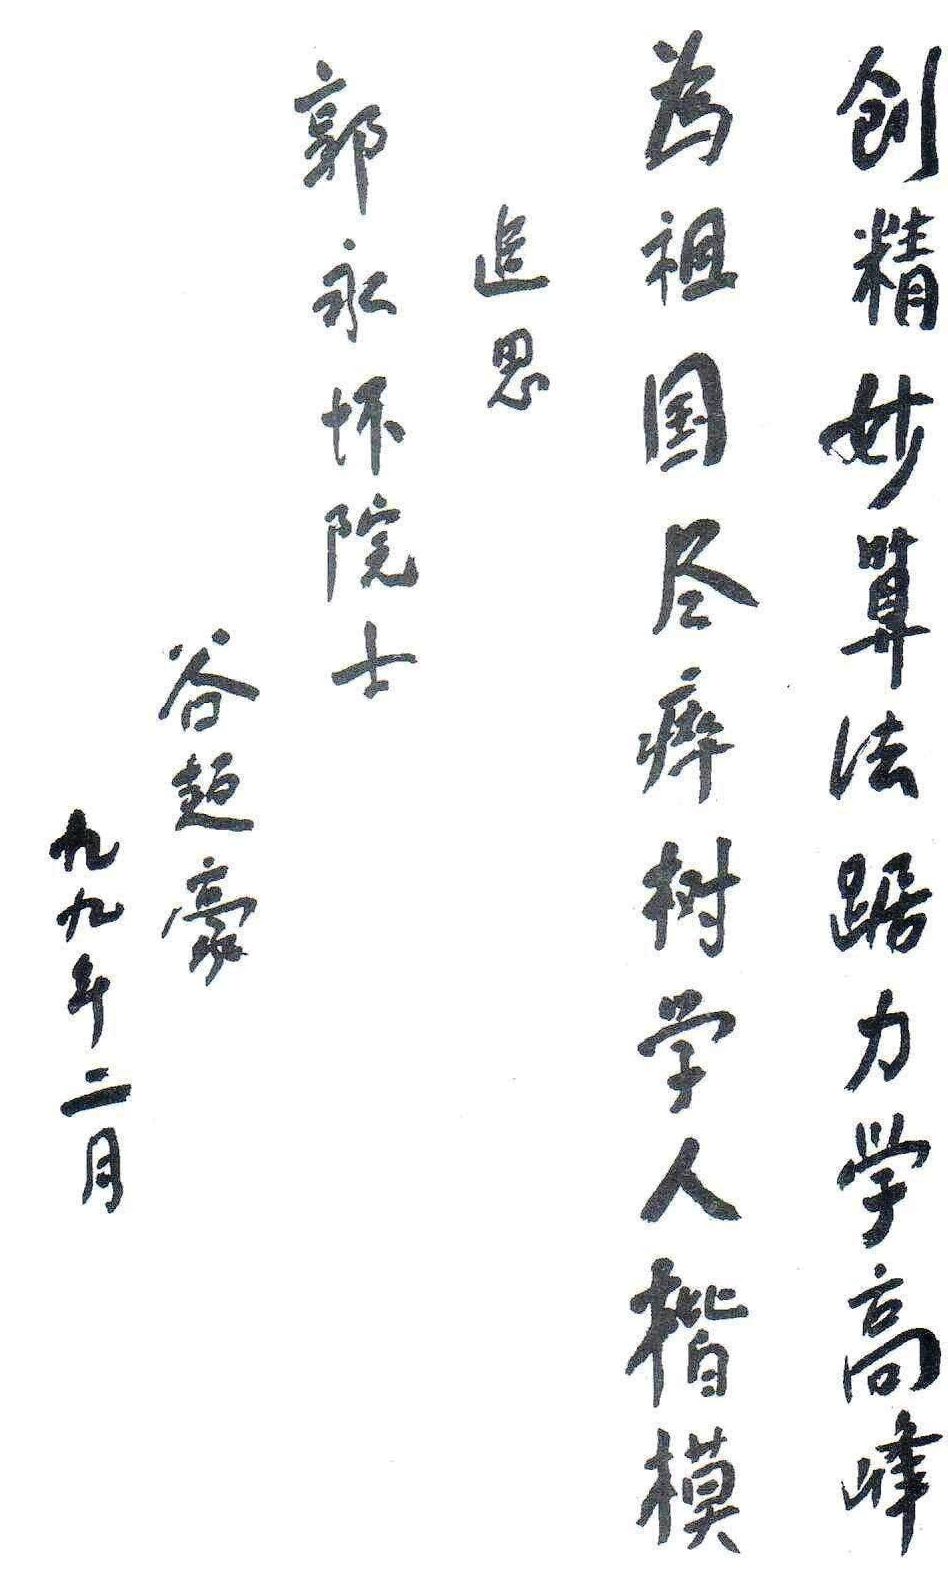 创精妙算法踞力学高峰
为祖国尽瘁树学人楷模
追思
郭永怀院士
谷超豪
九九年二月